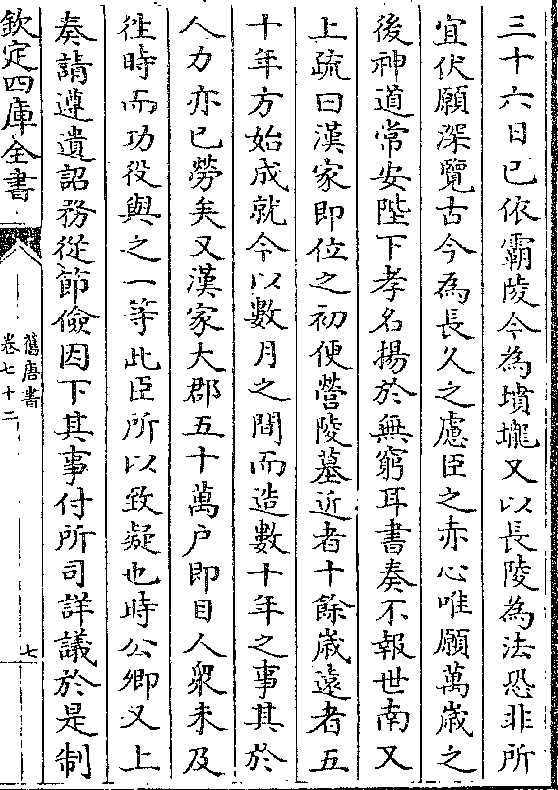 三十六日已依霸陵今為墳壠又以長陵為法恐非所
宜伏願深覽古今為長久之慮臣之赤心唯願萬歲之
後神道常安陛下孝名揚於無窮耳書奏不報世南又
上疏曰漢家即位之初便營陵墓近者十餘歲遠者五
十年方始成就今以數月之間而造數十年之事其於
人力亦已勞矣又漢家大郡五十萬户即目人衆未及
徃時而功役與之一等此臣所以致疑也時公卿又上
奏請遵遺詔務從節儉因下其事付所司詳議於是制
欽定四庫全書
舊唐書
卷七十二
七